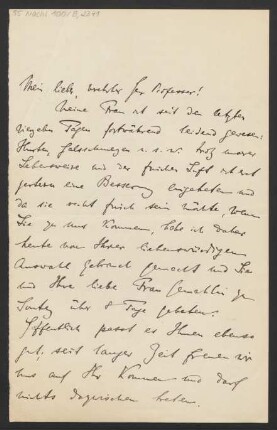 Mein lieber, verehrter Herr Professor!
Meine Frau ist seit den letzten
vierzehn Tagen fortwährend leidend gewesen:
Husten, Halsschmerzen u.s.w. trotz unserer
Lebensweise und der frischen Luft ist erst
gestern eine Besserung eingetreten und
da sie nicht frisch sein würde, wenn
Sie zu uns kommen, habe ich daher
heute von Ihrer liebenswürdigen
Auswahl Gebrauch gemacht und Sie
und Ihre liebe Frau Gemahlin zu
Sonntag über 8 Tage gebeten.
Hoffentlich passt es Ihnen ebenso
gut, seit langer Zeit freuen wir
uns auf Ihr Kommen und darf
nichts dazwischen treten.